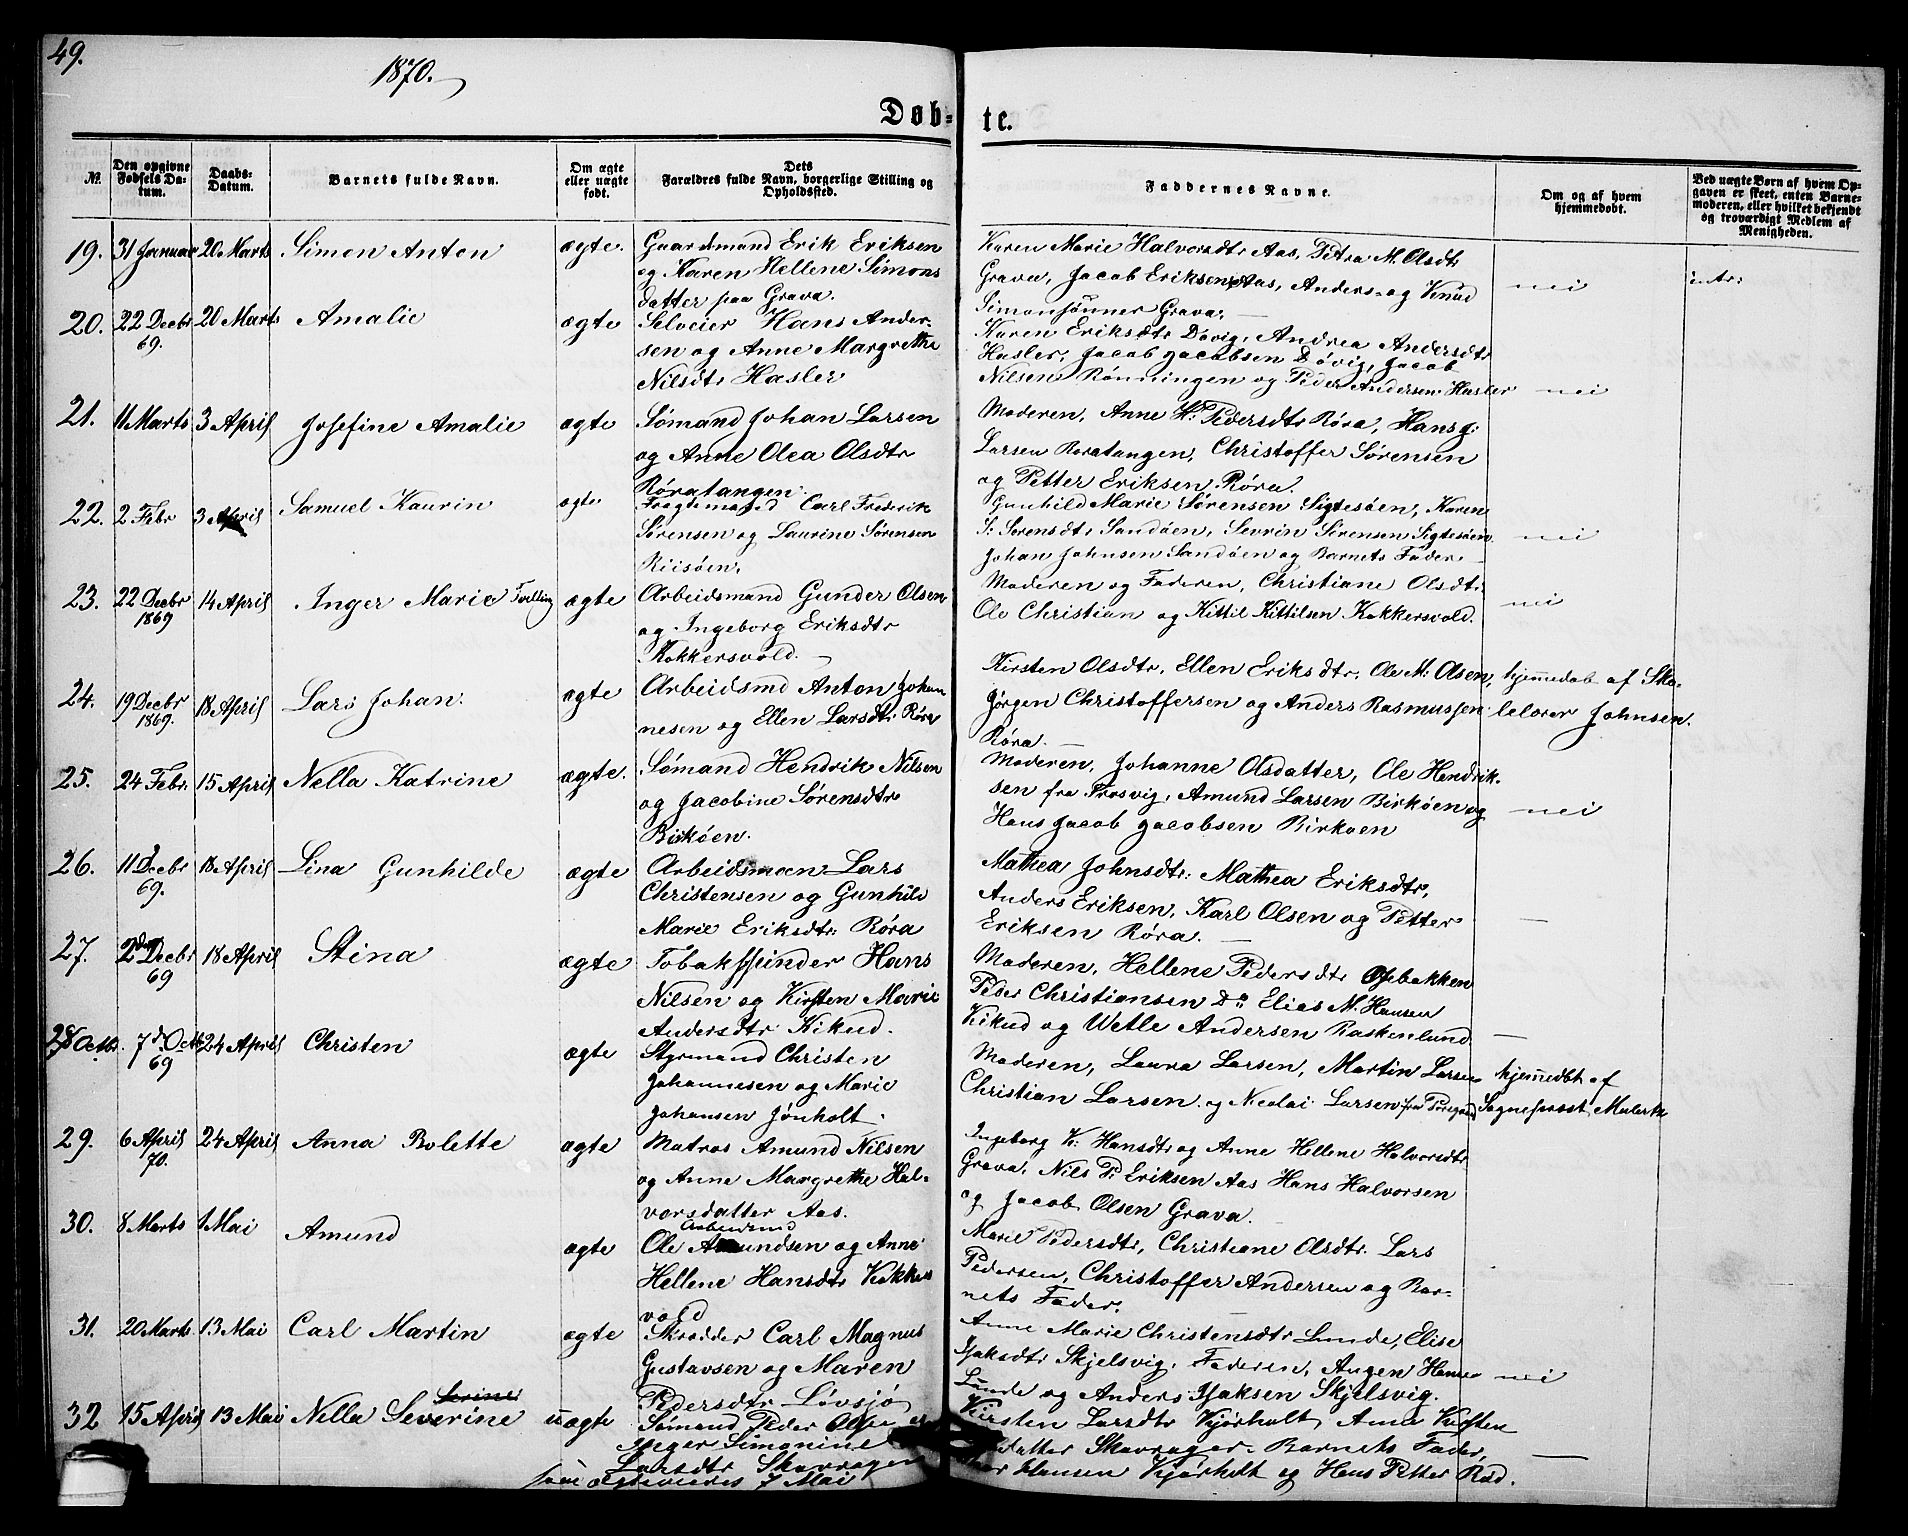 49.
1870.
Døb-
te.
№
Den opgivne Fødsels Datum.
Daabs-Datum.
Barnets fulde Navn.
Om ægte eller uægte født.
Dets Forældres fulde Navn, borgerlige Stilling og Opholdssted.
Faddernes Navne.
Om og af hvem hjemmedøbt.
Ved uægte Børn af hvem Opgaven er skeet, enten Barnemoderen, eller hvilket bekjendt og troværdigt Medlem af Menigheden.
19. 31 Januar 20 Marts Simon Anton ægte. Gaardmand Erik Eriksen
og Karen Hellene Simons
datter paa Grava.
Karen Marie Halvorsdtr Aas, Petra M. Olsdtr
Grava, Jacob Eriksen Aas, Anders og Knud
Simonsønner Grava.
nei
intr:
20. 22 Decbr 69. 20 Marts Amalie ægte Selveier Hans Ander-
sen og Anne Margrethe
Nilsdtr Hasler
Karen Eriksdtr Døvig, Andrea Andersdtr
Hasler, Jacob Jacobsen Døvig, Jacob
Nilsen Rønningen og Peder Andersen Hasler
nei
21. 11 Marts 3 April Josefine Amalie ægte Sømand Johan Larsen
og Anne Olea Olsdtr
Røratangen.
Moderen, Anne K: Pedersdtr Røra, Hans J:
Larsen Røratangen, Christoffer Sørensen
og Petter Eriksen Røra.
22. 2 Febr 3 April Samuel Kaurin ægte Fragtemand Carl Frederik
Sørensen og Laurine Sørensen
Riisøen.
Gunhild Marie Sørensen Sigtesøen, Karen
S: Sørensdtr Sandøen, Sevrin Sørensen Sigtesøen
Johan Johnsen Sandøen og Barnets Fader.
nei
23. 22 Decbr 1869 14 April Inger Marie Tvilling ægte Arbeidsmand Gunder Olsen
og Ingeborg Eriksdtr
Kokkersvold.
Moderen og Faderen, Christiane Olsdtr
Ole Christian og Kittil Kittilsen Kokkersvold.
nei
24. 19 Decbr 1869. 18 April Lars Johan. ægte Arbeidsmd Anton Johan
nesen og Ellen Larsdtr Røra
Kirsten Olsdtr, Ellen Eriksdtr, Ole M: Olsen,
Jørgen Christoffersen og Anders Rasmussen
Røra.
hjemmedøb af Sko-
lelærer Johnsen.
25. 24 Febr. 15 April Nella Katrine ægte. Sømand Hendrik Nilsen
og Jacobine Sørensdtr
Birkøen.
Moderen, Johanne Olsdatter, Ole Hendrik-
sen fra Trosvig, Amund Larsen Birkøen og
Hans Jacob Jacobsen Birkøen
nei
26. 11 Decbr 69. 18 April Lina Gunhilde ægte Arbeidsmæn Lars
Christensen og Gunhild
Marie Eriksdtr: Røra
Mathea Johnsdtr: Mathea Eriksdtr,
Anders Eriksen, Karl Olsen og Petter
Eriksen Røra.
27. 2den Decbr 69 18 April Stina ægte Tobakspinder Hans
Nilsen og Kirsten Marie
Andersdtr Kikud.
Moderen, Hellene Pedersdtr Osebakken
Peder Christiansen Do Elias M. Hansen
Kikud og Wetle Andersen Raskenlund
28 Octbr. 7de Octb 69 24 April Christen ægte Styrmand Christen
Johannesen og Marie
Johansen Jønholt.
Moderen, Laura Larsen, Martin Larsen
Christian Larsen og Nicolai Larsen fra Porsgrund
hjemmedbt af
Sogneprest Malerk
29. 6 April 70. 24 April Anna Bolette ægte Matros Amund Nilsen
og Anne Margrethe Hal-
vorsdatter Aas.
Ingeborg K: Hansdtr og Anne Hellene Halvorsdtr
Grava, Nils P. Eriksen Aas Hans Halvorsen
og Jacob Olsen Grava.
30. 8 Marts 1 Mai Amund ægte Arbeidsmd
Ole Amundsen og Anne
Hellene Hansdtr Kokkers
vold
Marie Pedersdtr, Christiane Olsdtr: Lars
Pedersen, Christoffer Andersen og Bar-
nets Fader.
31. 20 Marts 13 Mai Carl Martin ægte Skrædder Carl Magnus
Gustavsen og Maren
Pedersdtr Løvsjø
Anne Marie Christensdtr Lunde, Elise
Isaksdtr Skjelsvig, Faderen, Augen Hansen
Lunde og Anders Isaksen Skjelsvig.
nei
32 15 April 13 Mai Nella Severine uægte Sømand Peder Olsen og
Inger Simonine
Larsdtr Skavragen
som ægtevies 7 Mai
Kirsten Larsdtr Kjørholt, Anne Kirsten
datter Skavrager. Barnets Fader,
Hansen Kjørholt og Hans Petter Rød.